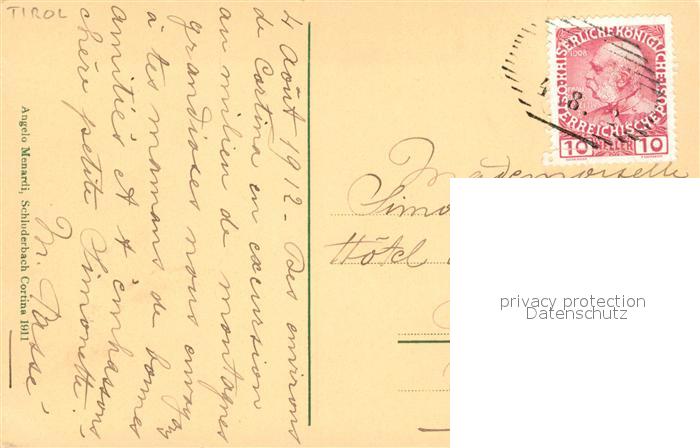 TIROL
4 Août 1912 - Des environs
de Cortina en excursion
au milieu de montagnes
grandioses nous envoyons
à tes mamans de bonnes
amitiés et t'embrassons
chère petite Simonette.
M. Passe
Angelo Menardi, Schluderbach Cortina 1911
KAISERLICHE KÖNIGLICHE
ÖSTERREICHISCHE POST
1908
10 HELLER 10
4 8.
Mademoiselle
Simo
Hôtel
privacy protection
Datenschutz